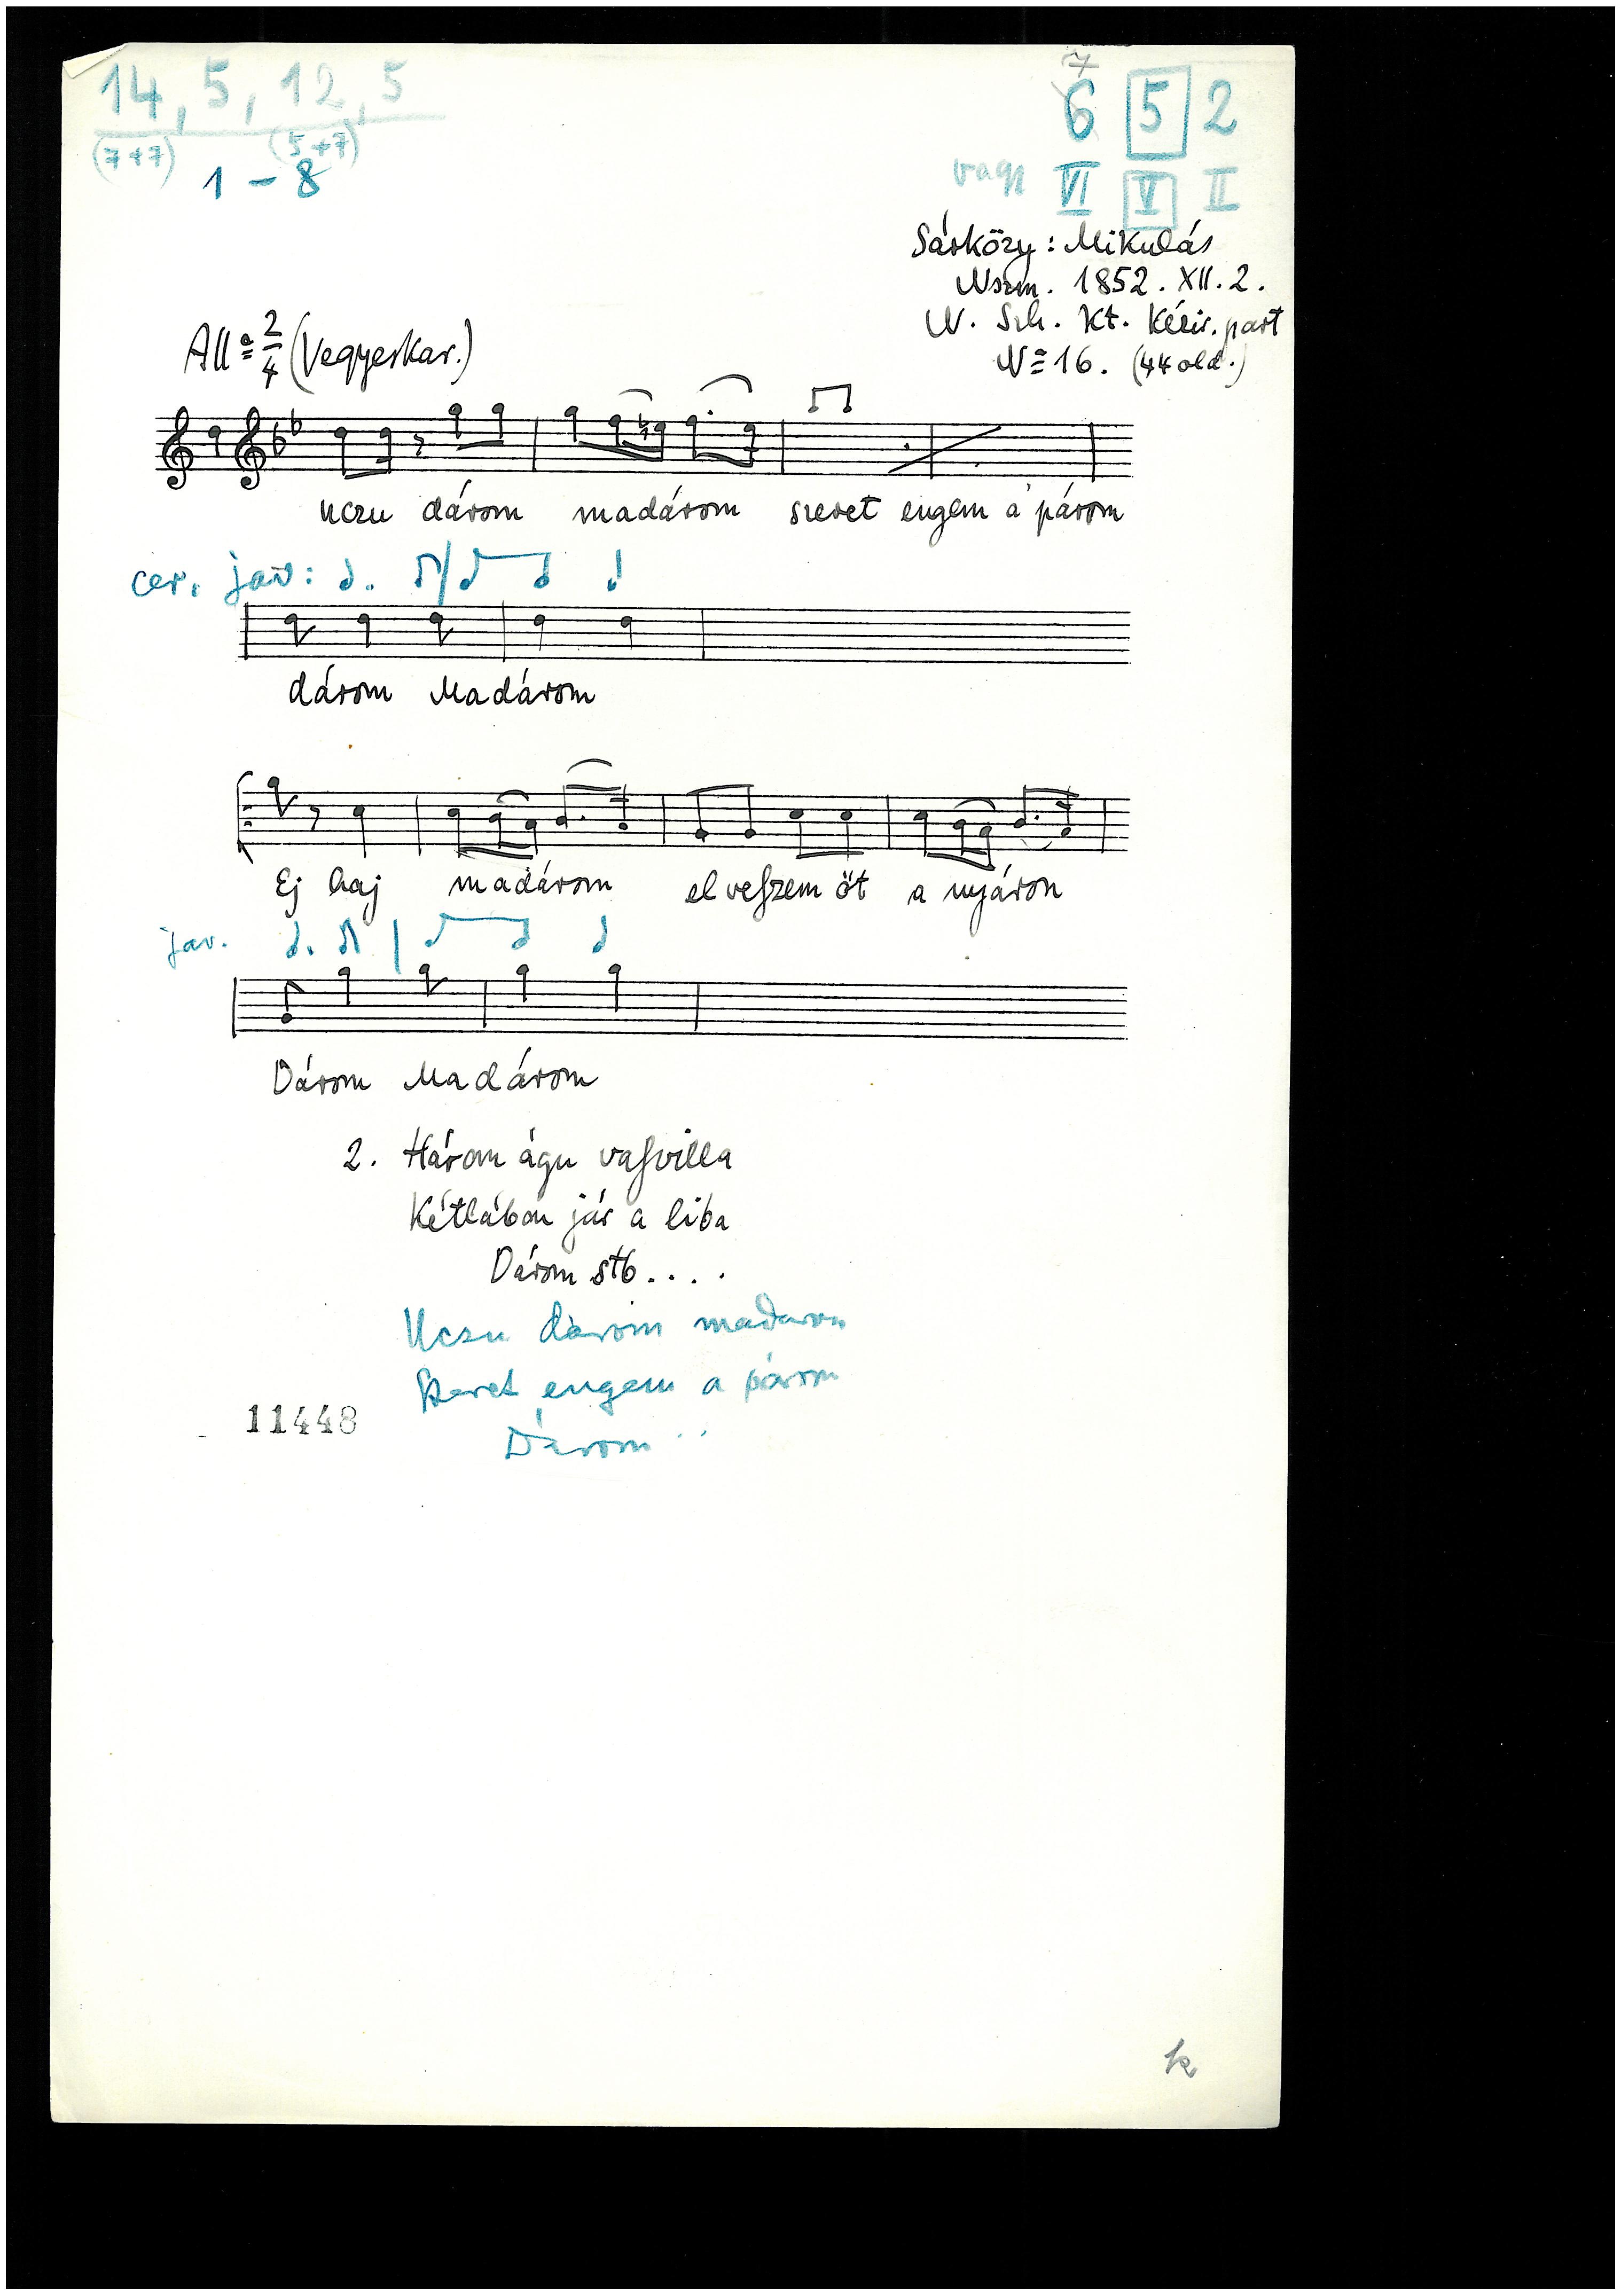 14, 5, 12, 5
(7+7) (5+7)
1 - 8
7
6 5 2
vagy VI V II
Sárközy: Mikulás
Nszm. 1852. XII. 2.
N. Szh. Kt. Kézir. part
No 16. (44 old.)
Allo 2/4 (Vegyeskar.)
uczu dárom madárom szeret engem a' párom
cer. jav:
dárom Madárom
Ej haj madárom elveszem öt a nyáron
jav.
Dárom Madárom
2. Három águ vasvilla
Kétlábon jár a liba
Dárom stb....
Uczu dárom madárom
Szeret engem a párom
Dárom
11448
k